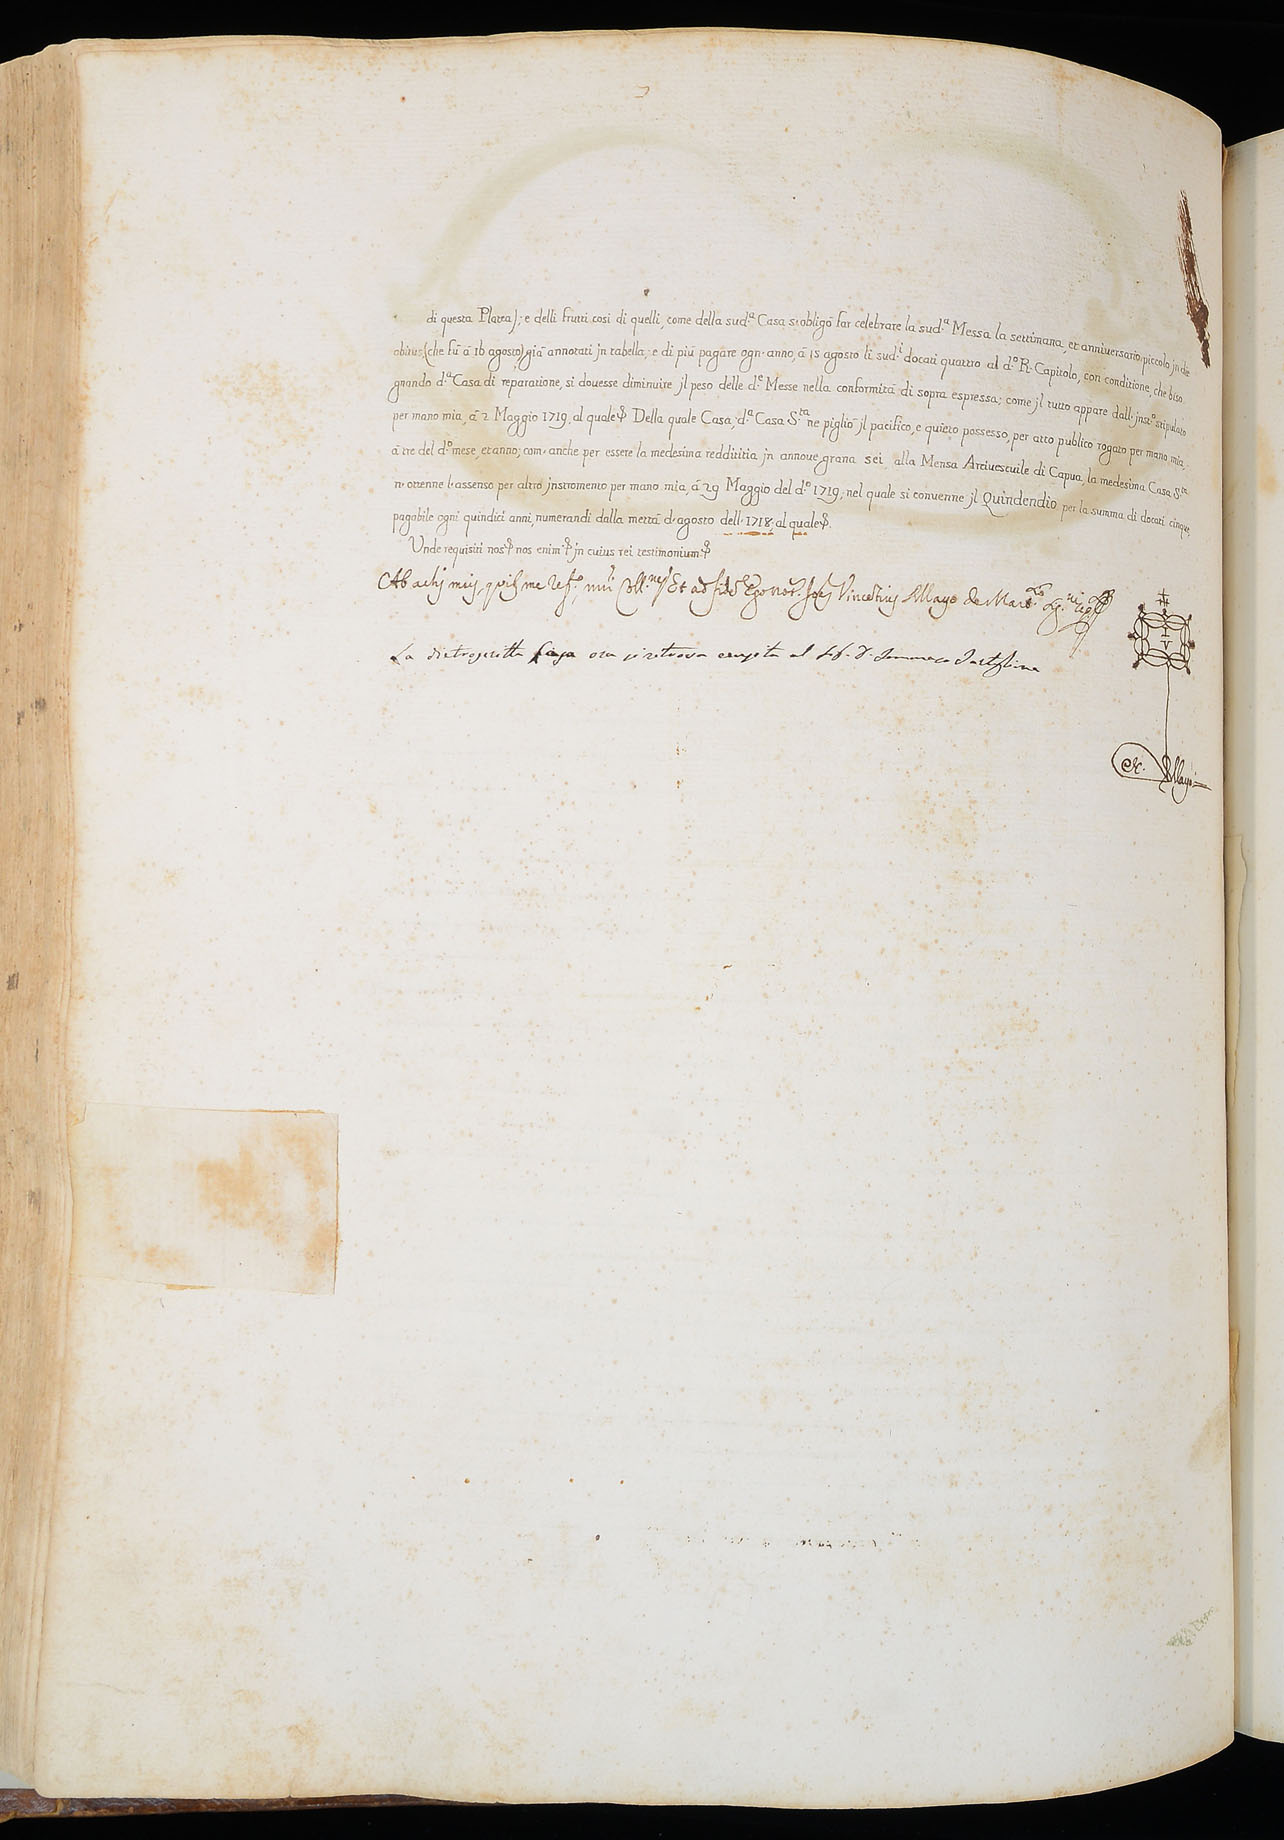 di questa Platea); e delli frutti così di quelli, come della sud.ª Casa s'obligò far celebrare la sud.ª Messa la settimana, et anniversario piccolo jn die
obitus (che fù à 16 agosto) già annotati jn tabella; e di più pagare ogn'anno, à 15 agosto li sud.ⁱ docati quattro al d.º R. Capitolo, con conditione, che biso
gnando d.ª Casa di reparatione, si douesse diminuire jl peso delle d.ᵉ Messe nella conformità di sopra espressa; come jl tutto appare dall'jnst.º stipulato
per mano mia, à 2 Maggio 1719, al quale Della quale Casa, d.ª Casa S.ᵗᵃ ne pigliò jl pacifico, e quieto possesso, per atto publico rogato per mano mia,
à tre del d.º mese, et anno; com'anche per essere la medesima reddititia jn annoue grana sei alla Mensa Arciuescuile di Capua, la medesima Casa S.ᵗᵃ
n'ottenne l'assenso per altro jnstromento per mano mia, à 29 Maggio del d.º 1719, nel quale si conuenne jl Quindendio per la summa di docati cinque,
pagabile ogni quindici anni, numerandi dalla mettà d'agosto dell'1718, al quale
Unde requisiti nos nos enim jn cuius rei testimonium
Ab actis meis, me Et ad fidem Ego not. Vincentius Mayo de
La dietroscritta Casa ora si ritrova al D. Tommaso
Mayo